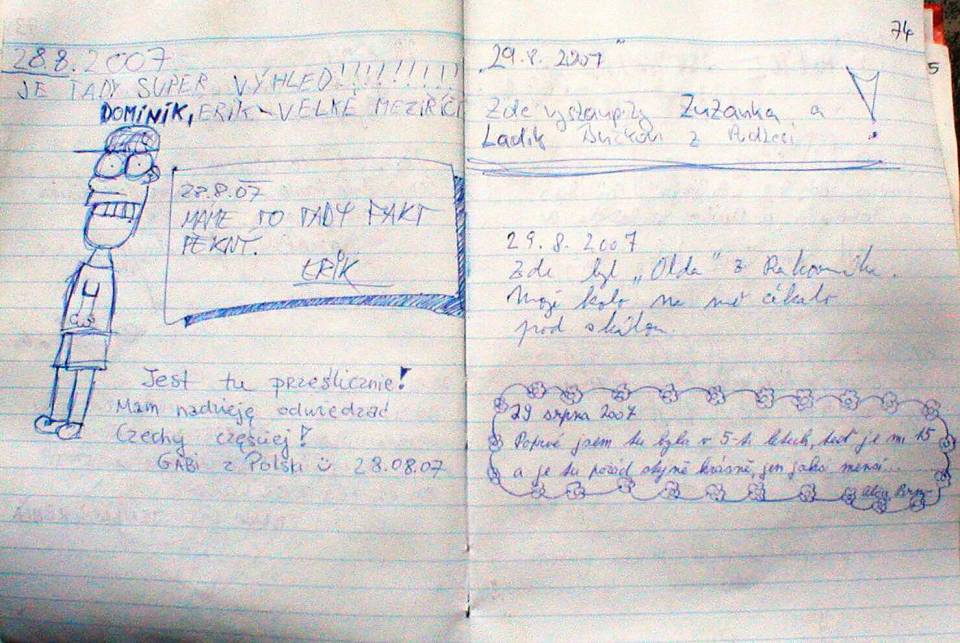 28.8.2007
JE TADY SUPER VÝHLED!!!!!!!!!
DOMINIK, ERIK - VELKÉ MEZIŘÍČÍ
28.8.07
MÁME TO TADY FAKT
PĚKNÝ.
ERIK
Jest tu prześlicznie!
Mam nadzieję odwiedzać
Czechy częściej!
GABI z Polski 28.08.07
74
5
29.8.2007
Zde vystoupily Zuzanka a
Ladik z
29.8.2007
Zde byl „Olda" z Rakovníka.
Moje kolo na mě čekalo
pod skálou.
29 srpna 2007
Poprvé jsem tu byla v 5-ti letech, teď je mi 15
a je tu pořád stejně krásně, jen jako menší...